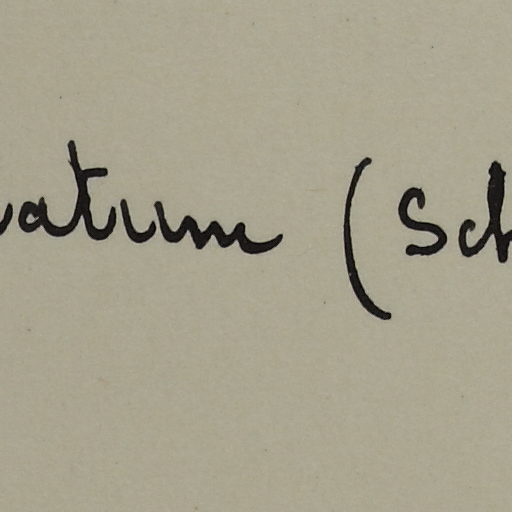 vatum (Sch